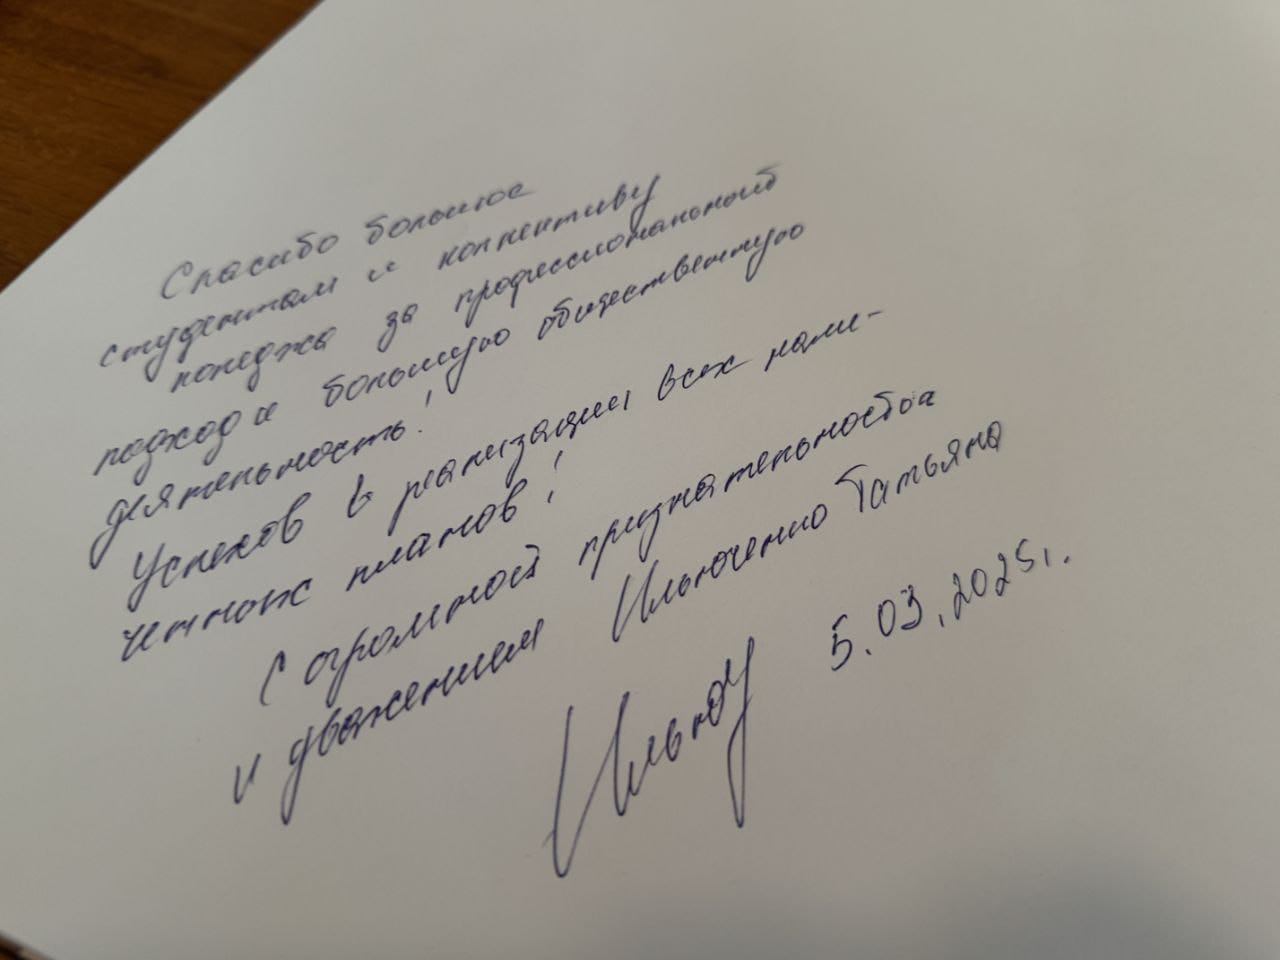 Спасибо большое
студентам и коллективу
колледжа за профессиональный
подход и большую общественную
деятельность!
Успехов в реализации всех наме-
ченных планов!
С огромной признательностью
и уважением Ильюченко Татьяна
5.03.2025г.